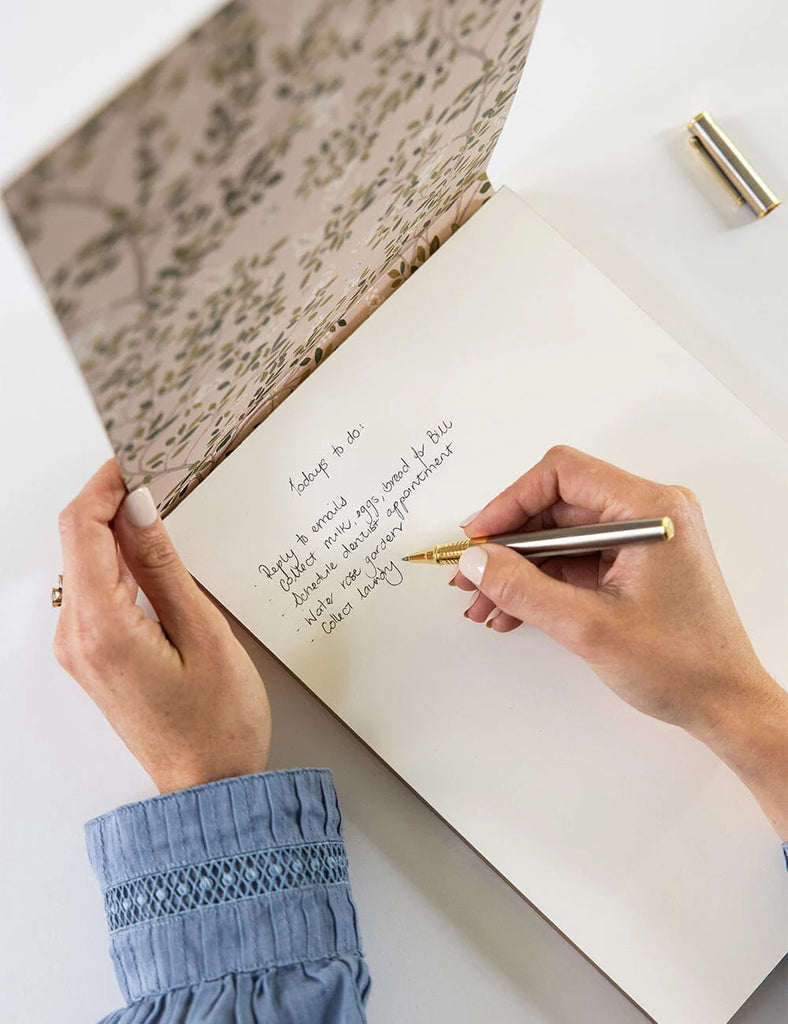 Todays to do:
- Reply to emails
- Collect milk, eggs, bread for Bill
- Schedule dentist appointment
- Water rose garden
- Collect laundy